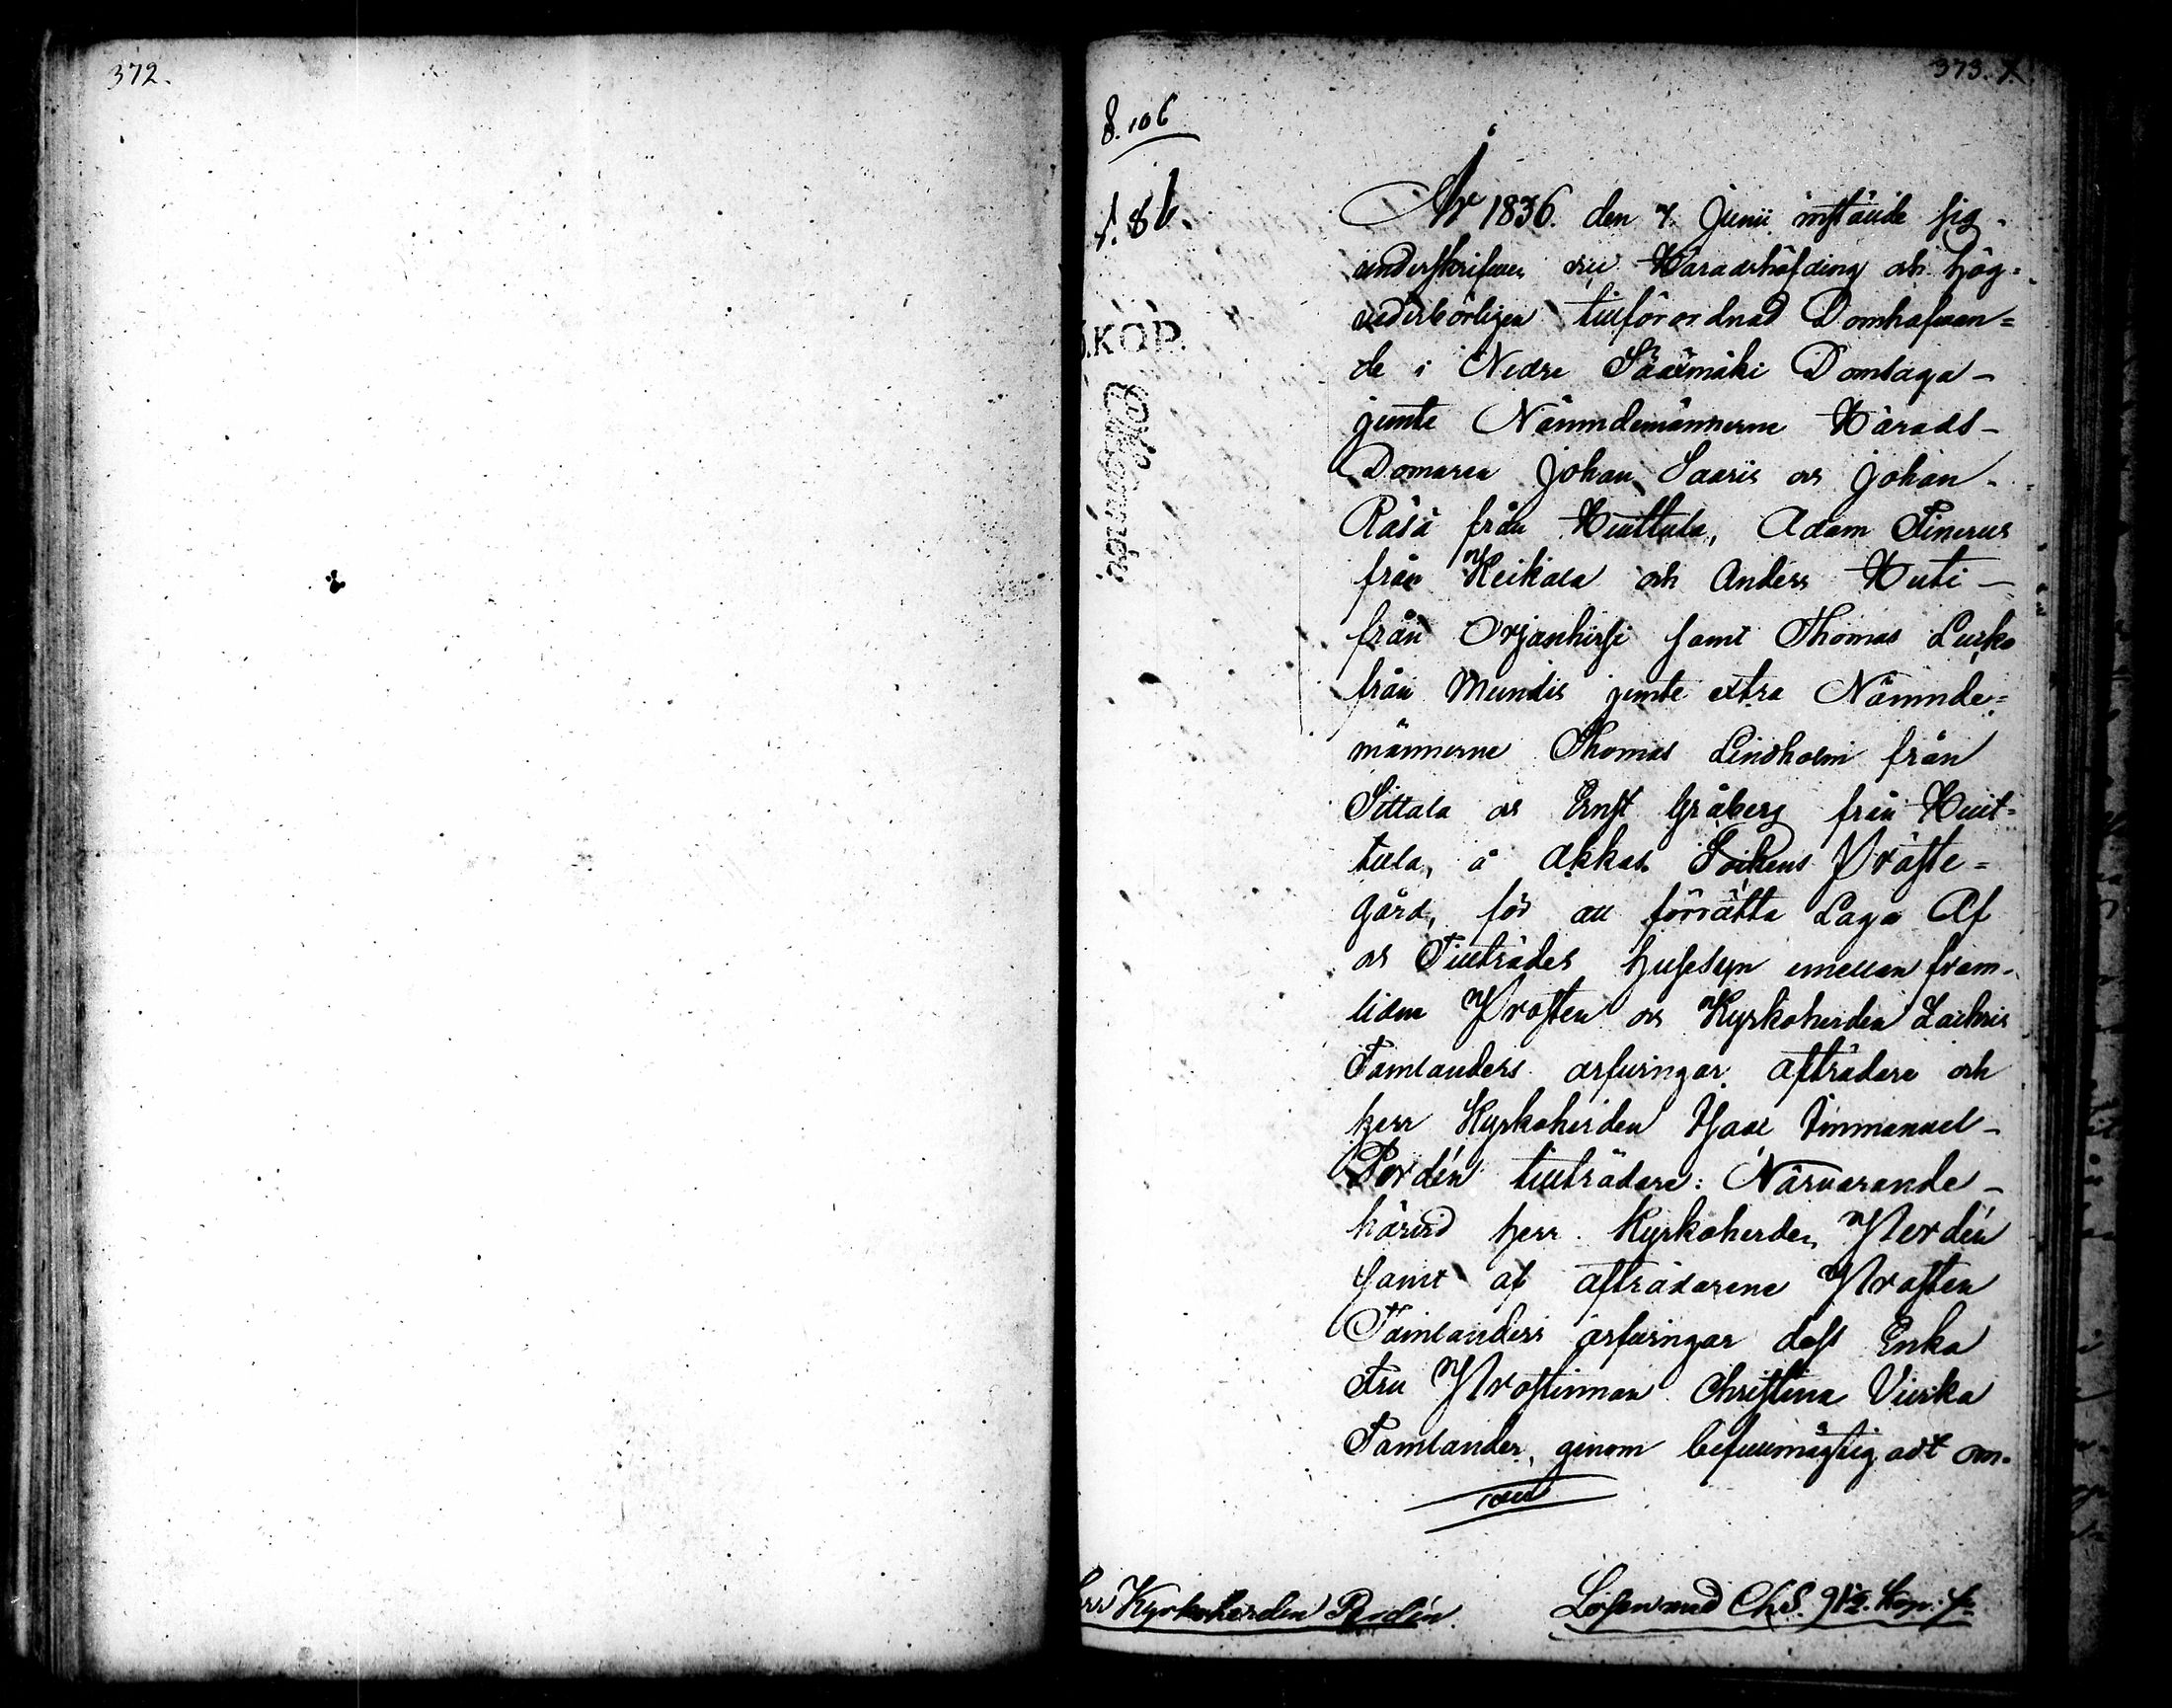 372.
373.
8.106
§.86.
KOP.
År 1836. den 7. Junii instälde sig
underskrifven vice Häradshöfding och hög-
vederbörligen tillförordnad Domhafvan-
de i Nedre Sääxmäki Domsaga
jemte Nämndemännerne Härads-
Domaren Johan Saaris och Johan
Räsä från Huittula, Adam Finerus
från Keikala och Anders Huti
från Orjanhirsi samt Thomas Lurko
från Mundis jemte extra Nämnde-
männerne Thomas Lindholm från
Sittala och Ernst Gråberg från Huit-
tula, å Akkas Sockens Präste-
gård, för att förrätta Laga Af
och Tillträdes Husesyn emellan fram-
lidne Prosten och Kyrkoherden Zachris
Tamlanders arfvingar afträdare och
Herr Kyrkoherden Isaac Immanuel
Perdén tillträdare: Närvarande
härvid Herr Kyrkoherden Perdén
samt af afträdarene Prosten
Tamlanders arfvingar dess Enka
Fru Prostinnan Christina Virka
Tamlander, genom befullmägtigadt om-
Herr Kyrkoherden Perdén.
Lösen med Ch.S. Kop. Sr